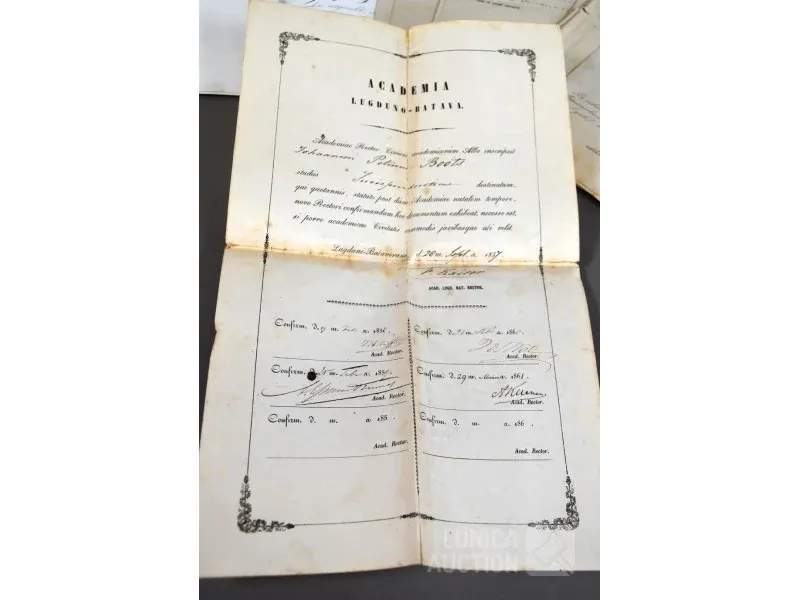 ACADEMIA
LUGDUNO-BATAVA.
Academiae Rector Civium academicorum Albo inscripsit
Johannem Petrum Boots
studiis Jurisprudentiae destinatum,
qui quotannis, statuto post diem Academiae natalem tempore,
novo Rectori confirmandum hoc documentum exhibeat, necesse est,
si porro academicae Civitatis commodis juribusque uti velit.
Lugduno-Batavorum, d. 26 m. Sept. a. 1857.
F. Kaiser
ACAD. LUGD. BAT. RECTOR.
Confirm. d. m. a. 1858.
Acad. Rector.
Confirm. d. m. Feb. a. 1859.
Acad. Rector.
Confirm. d. m. a. 185 .
Acad. Rector.
Confirm. d. m. a. 1860.
Acad. Rector.
Confirm. d. 29 m. a. 1861.
A Kuenen
Acad. Rector.
Confirm. d. m. a. 186 .
Acad. Rector.
EUNICA
AUCTION